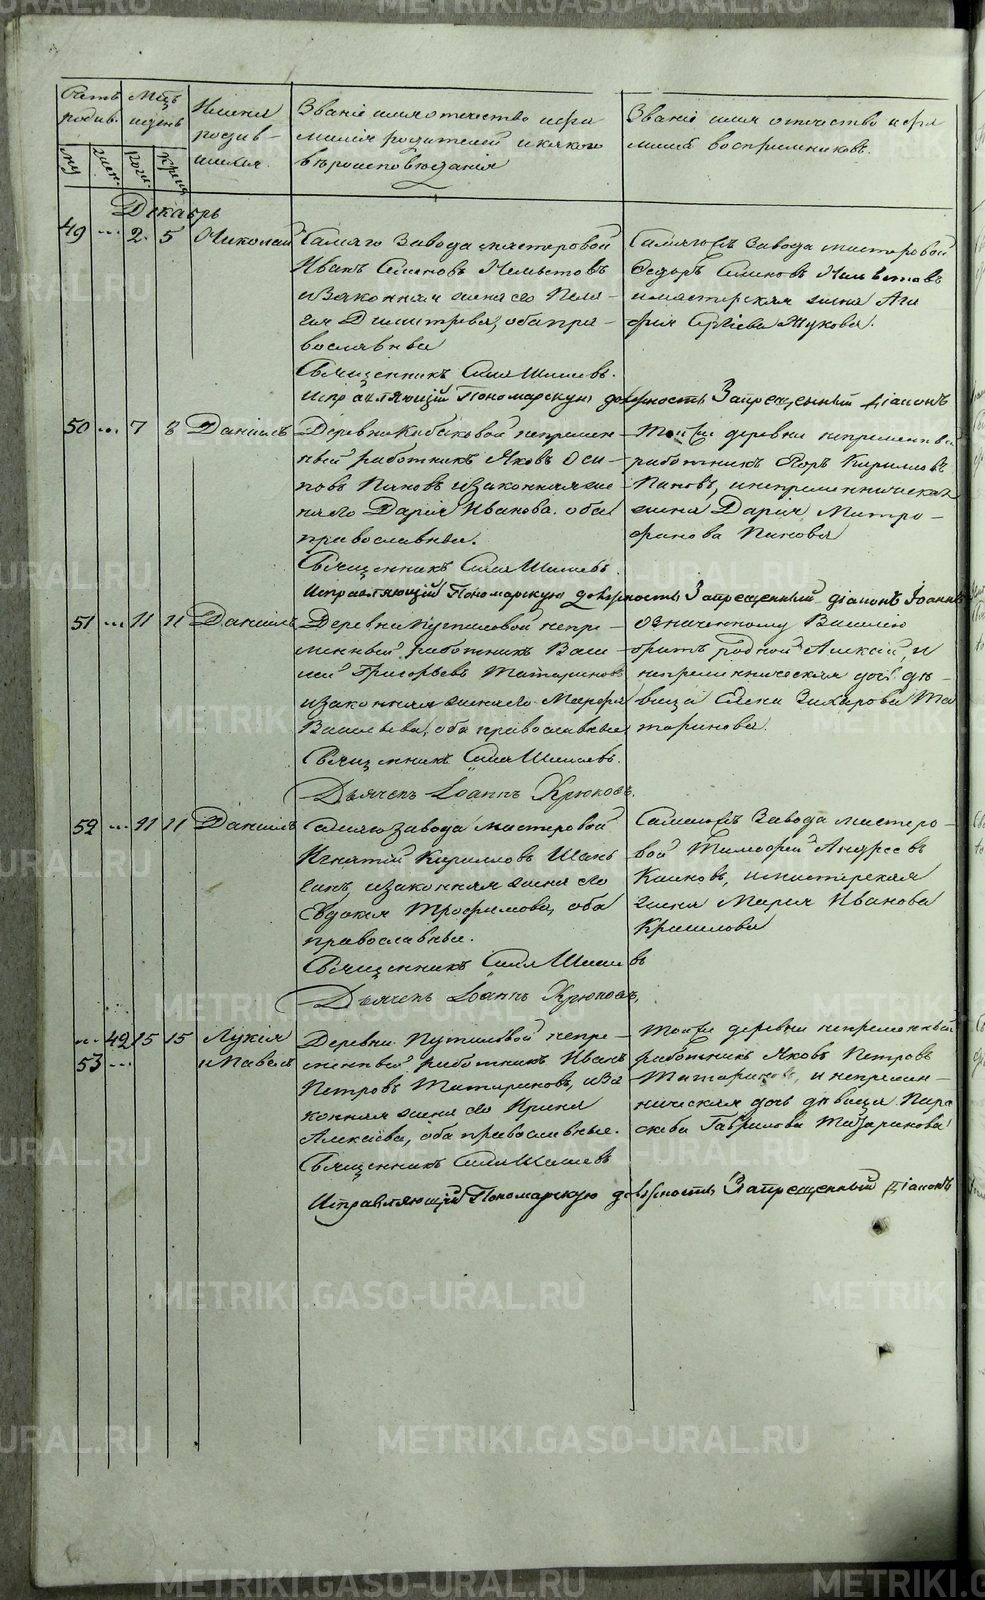 METRIKI.GASO-URAL.RU
Счетъ родив.
Мѣсяцъ и день
Имена родив-
шихся.
Званіе имя отечество и фа-
милія родителей и какого
вѣроисповѣданія
Званіе имя отечество и фа-
милія воспріемниковъ.
муж. жен. рожд. крещ.
Декабрь
49 ... 2. 5 Николай
Самаго Завода мастеровой
Иванъ Семеновъ
и законная жена его Пела-
гия Димитрева, оба пра-
вославные
Священникъ Сила Шишевъ.
Исправляющій Пономарскую должность Запрещенный діаконъ
Самаго Завода мастеровой
Федоръ Семеновъ
и мастерская жена Ага-
фия Сергіева Жукова.
50 ... 7 8 Даніилъ
Деревни Кабаковой непремен-
ный работникъ Яковъ Оси-
повъ Пановъ и законная же-
на его Дарія Иванова. оба
православные.
Священникъ Сила Шишевъ.
Исправляющій Пономарскую должность Запрещенный діаконъ Іоаннъ
Той же деревни непременный
работникъ Егоръ Кириловъ
Пановъ, и непременническая
жена Дарія Митро-
фанова Панова
51 ... 11 11 Даніилъ
Деревни Путиловой непре-
менный работникъ Васи-
лій Григорьевъ Татариновъ
и законная жена его Марфа
Васильева, оба православные
Священникъ Сила Шишевъ.
Дьячекъ Іоаннъ Крюковъ.
Означенному Василью
братъ родной Алексій, и
непременническая дочь дѣ-
вица Елена Захарова Та-
таринова.
52 ... 11 11 Даніилъ
Самаго Завода мастеровой
Игнатій Кириловъ Шань-
гинъ, и законная жена его
Евдокия Трофимова, оба
православные.
Священникъ Сила Шишевъ
Дьячекъ Іоаннъ Крюковъ.
Самаго Завода мастеро-
вой Тимофей Андреевъ
и мастерская
жена Марія Иванова
... 42 15 15 Лукія
53 ... и Павелъ
Деревни Путиловой непре-
менный работникъ Иванъ
Петровъ Татариновъ, и за-
конная жена его Ирина
Алексіева, оба православные.
Священникъ Сила Шишевъ
Исправляющій Пономарскую должность Запрещенный діаконъ
Той же деревни непременный
работникъ Яковъ Петровъ
Татариновъ, и непремен-
ническая дочь дѣвица Пара-
скева Гаврилова Татаринова